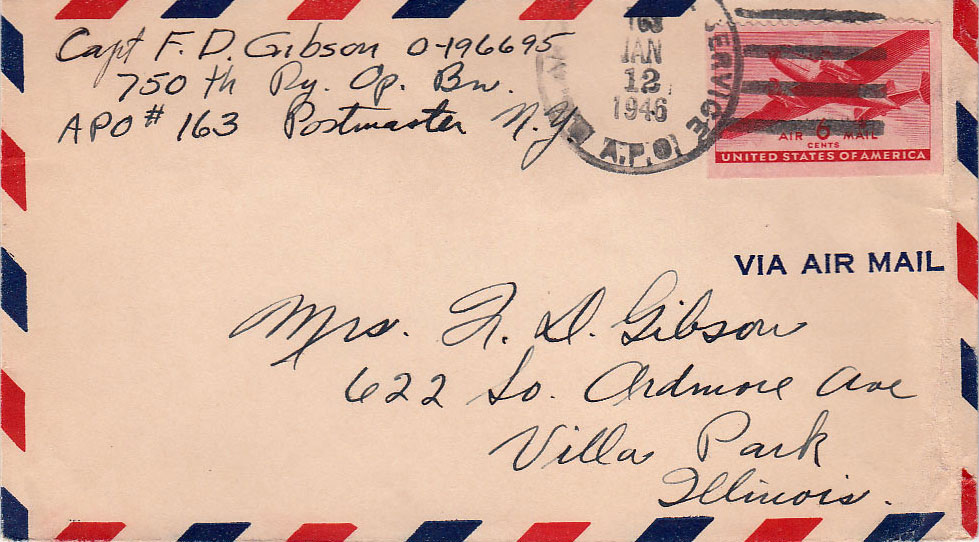 Capt F. D. Gibson O-196695
750th Ry. Op. Bn.
APO # 163 Postmaster N.Y.
JAN
12
1946
SERVICE
A.P.O.
AIR 6 MAIL
CENTS
UNITED STATES OF AMERICA
VIA AIR MAIL
Mrs. F. D. Gibson
622 So. Ardmore Ave
Villa Park
Illinois.